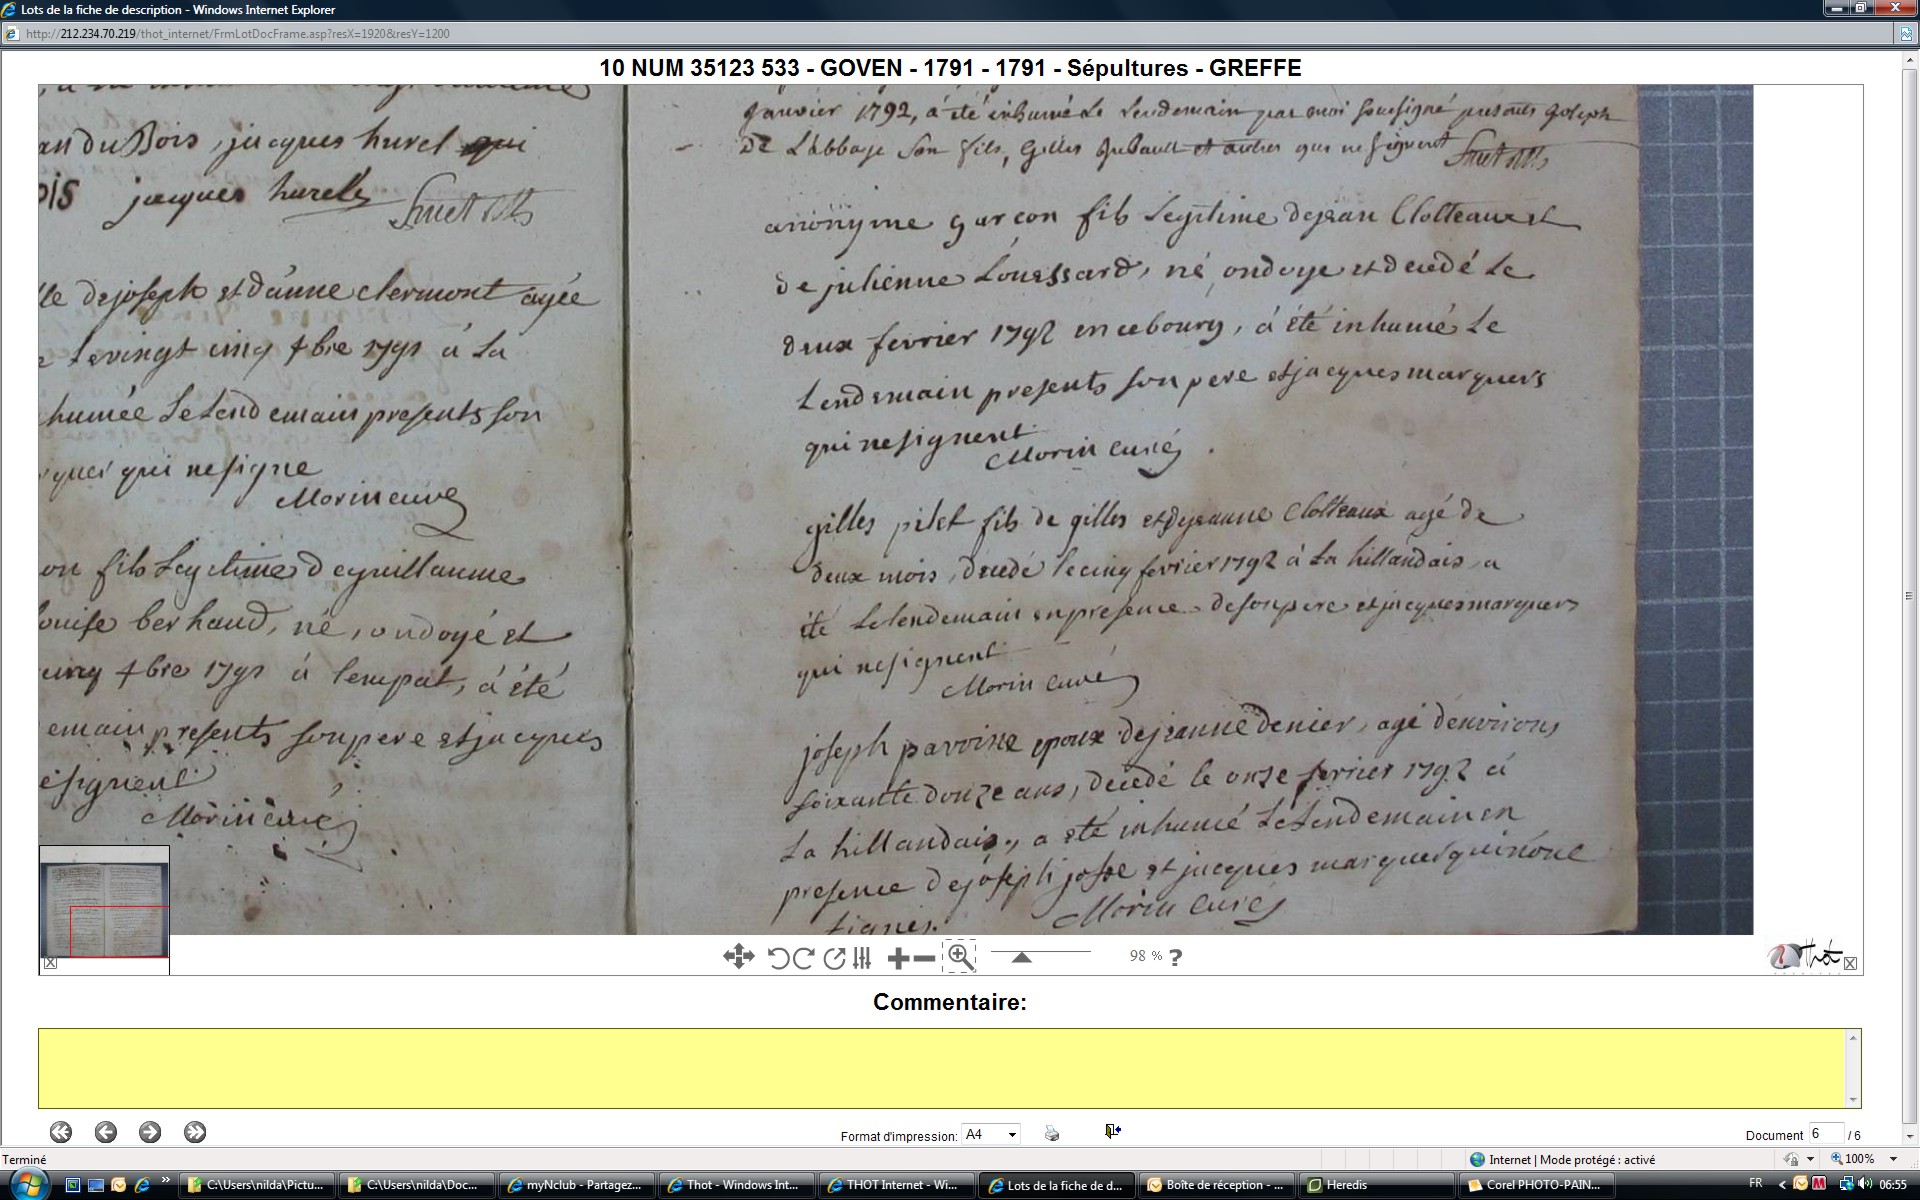 Lots de la fiche de description - Windows Internet Explorer
http://212.234.70.219/thot_internet/FrmLotDocFrame.asp?resX=1920&resY=1200
10 NUM 35123 533 - GOVEN - 1791 - 1791 - Sépultures - GREFFE
an du Bois, jacques hurel qui
ois jacques hurel
lle de joseph et d'anne clermont agée
le vingt cinq 7bre 1791 à la
humée le lendemain presents son
qui ne signe
Morin curé
on fils legitime de guillaume
louise berhaud, né, ondoyé et
7bre 1791 à lempat, à été
emain presents son pere et jacques
esignent
Morin curé
janvier 1792, à été inhumé le lendemain par moi soussigné presents joseph
de L'abbaye son fils, Gilles et autres qui ne signent
anonyme garcon fils legitime de jean Clolteaux et
de julienne Louessard, né, ondoye et decedé le
deux fevrier 1792 en ce bourg, à été inhumé le
lendemain presents son pere et jacques marquers
qui ne signent
Morin curé
gilles pilet fils de gilles et de jeanne Clolteaux agé de
deux mois, decedé le cinq fevrier 1792 à la hillandais, a
été le lendemain en presence de son pere et jacques marquers
qui ne signent
Morin curé
joseph pavoine epoux de jeanne denier, agé d'environs
soixante douze ans, decedé le onze fevrier 1792 à
la hillandais, a été inhumé le lendemain en
presence de joseph josse et jacques marquers qui n'ont
signés. Morin curé
98 % ?
Thot
Commentaire:
Format d'impression: A4
Document 6 / 6
Terminé
Internet | Mode protégé : activé
100%
C:\Users\nilda\Pictu...
C:\Users\nilda\Doc...
myNclub - Partagez...
Thot - Windows Int...
THOT Internet - Wi...
Lots de la fiche de d...
Boîte de réception - ...
Heredis
Corel PHOTO-PAIN...
FR
06:55